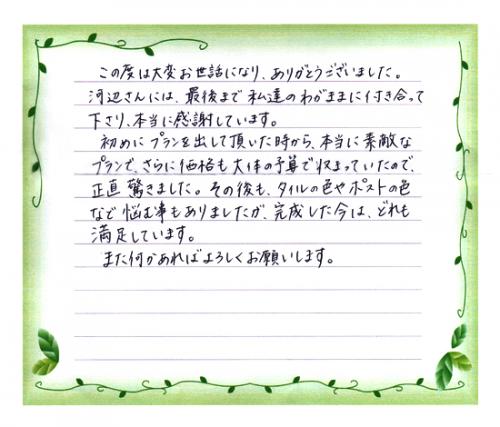 この度は大変お世話になり、ありがとうございました。
河辺さんには、最後まで私達のわがままに付き合って
下さり、本当に感謝しています。
初めにプランを出して頂いた時から、本当に素敵な
プランで、さらに価格も大体の予算で収まっていたので、
正直驚きました。その後も、タイルの色やポストの色
など悩む事もありましたが、完成した今は、どれも
満足しています。
また何かあればよろしくお願いします。